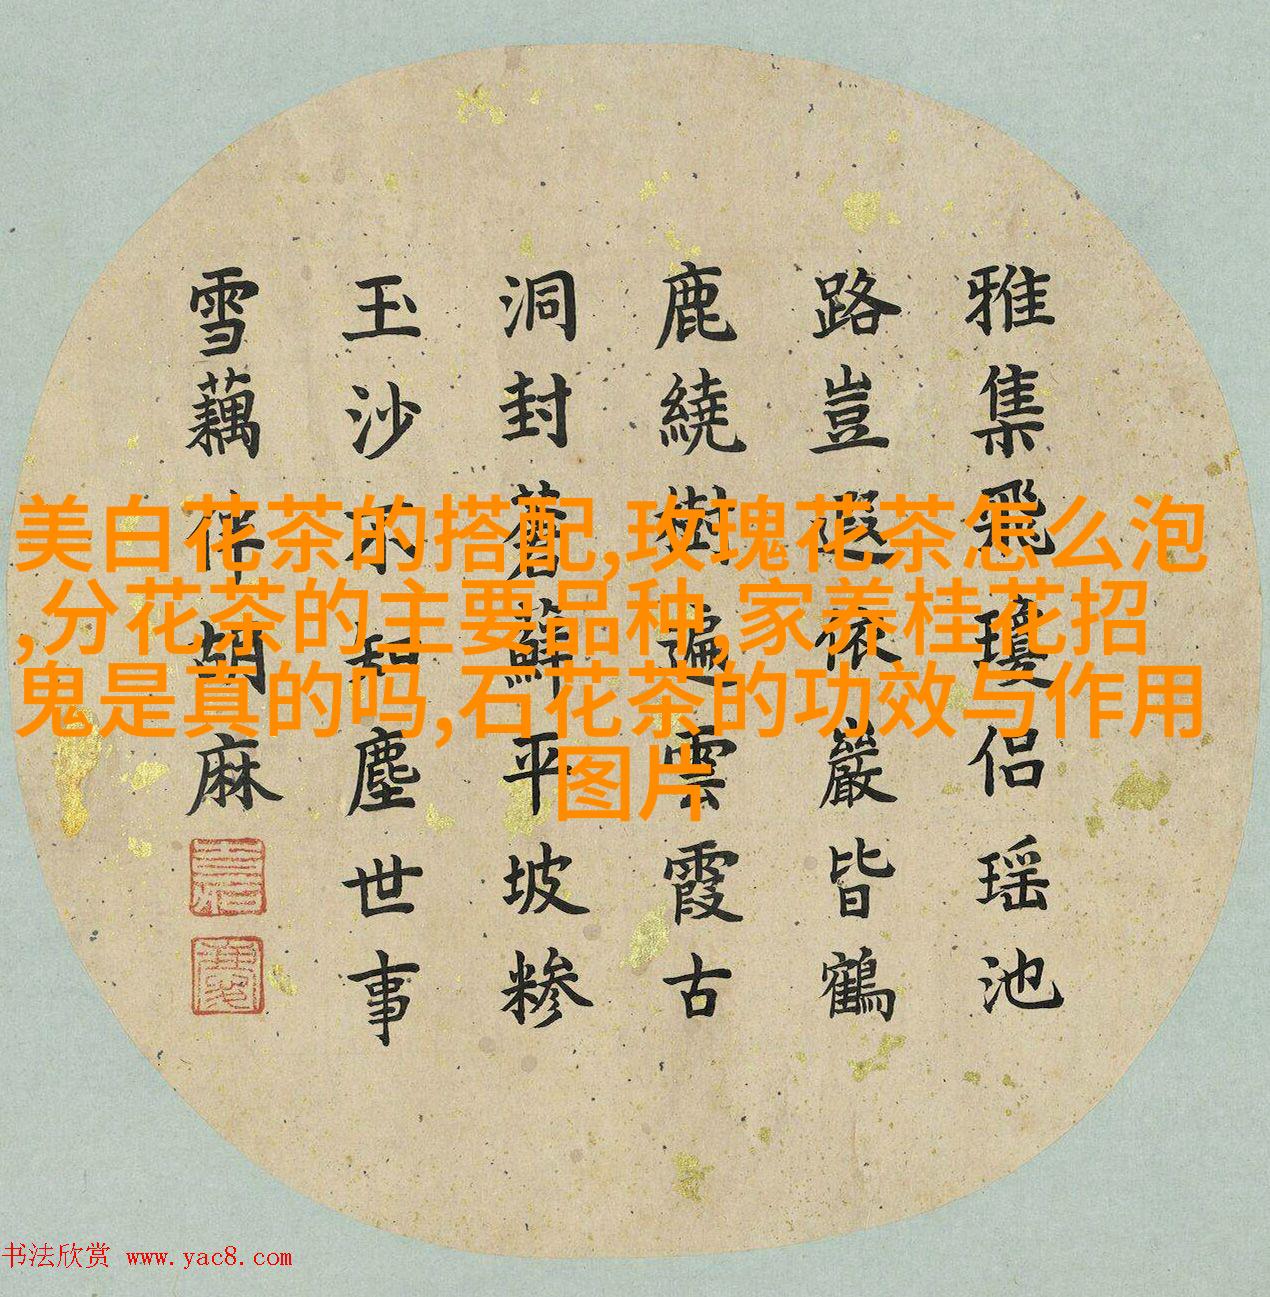 美白花茶的搭配,玫瑰花茶怎么泡
,分花茶的主要品种,家养桂花招
鬼是真的吗,石花茶的功效与作用
图片
雅集飛瓊侣瑶池
路豈遐依巖皆鶴
鹿繞樹遍雲霞古
洞封蒼蘚平坡糝
玉沙不知塵世事
雪藕伴胡麻
书法欣赏 www.yac8.com